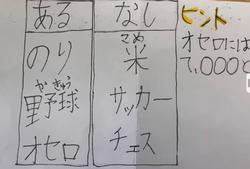 ある なし
のり 米
こめ
野球 サッカー
やきゅう
オセロ チェス
ヒント
オセロには
7,000